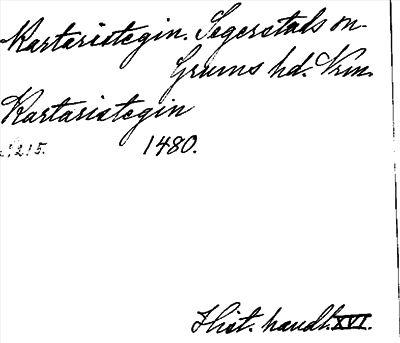 Kartaristegin. Segerstads sn
Grums hd. Vrm.
Kartaristegin
1215. 1480.
Hist. handl. XVI.